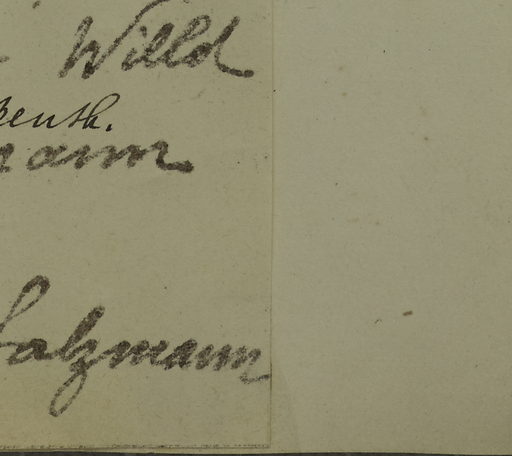 Willd.
Benth.
mann.
Salzmann